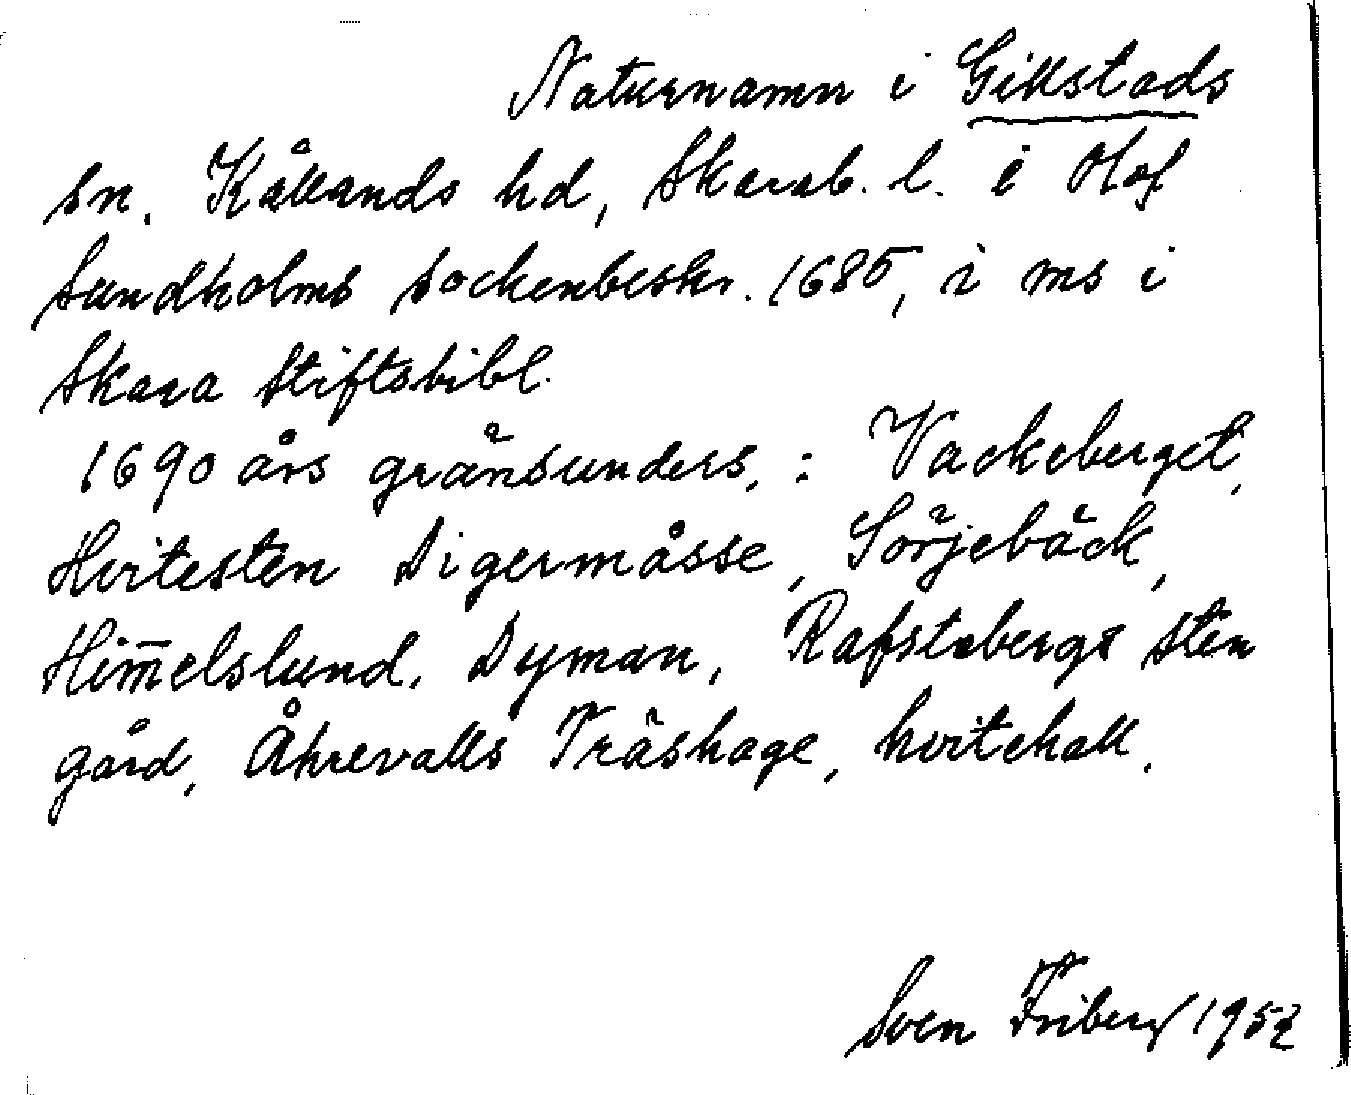 Naturnamn i Gillstads
sn. Kållands hd, Skarab. l. i Olof
Sundholms sockenbeskr. 1685, i ms i
Skara Stiftsbibl.
1690 års gränsunders. : Vackeberget,
Hvitesten Digermåsse, Sörjebäck,
Him̄elslund, Dyman, Rafstabergs sten
gård, Åhrevalls Träshage, hvitehall.
Sven Friberg 1952